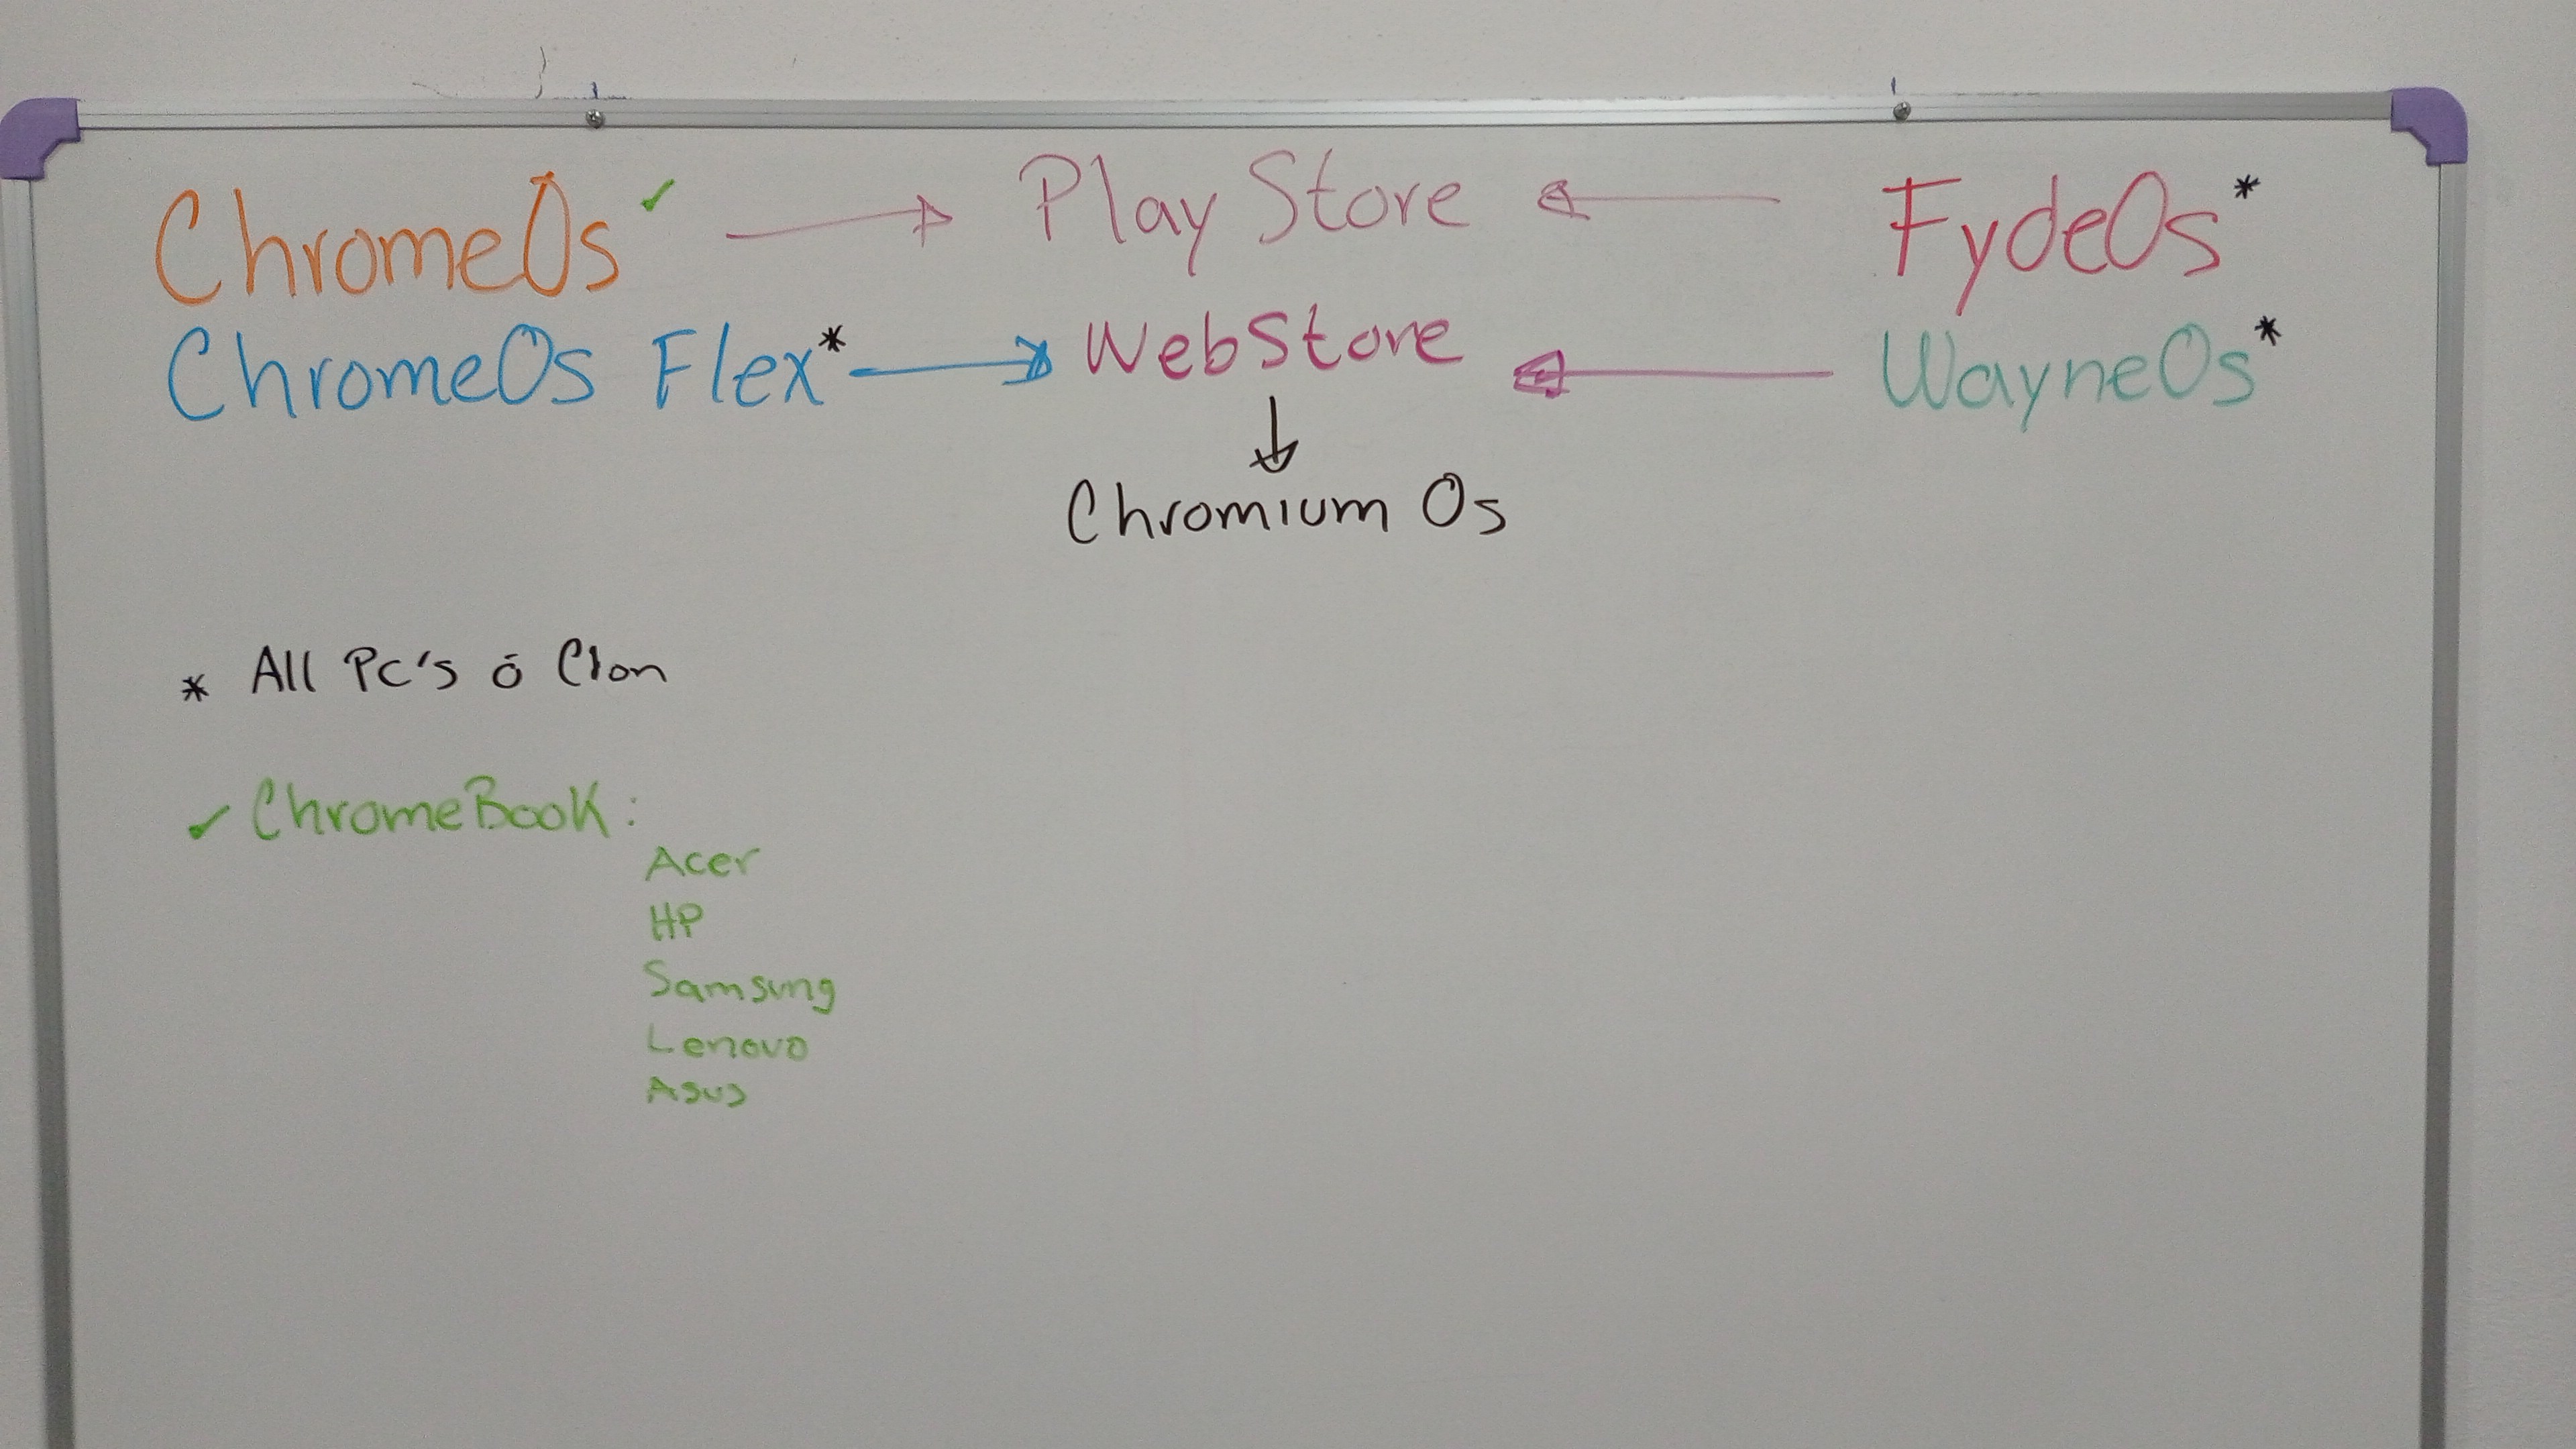 ChromeOs ✓ → Play Store ← FydeOs *
ChromeOs Flex * → WebStore ← WayneOs *
↓
Chromium Os
* All Pc's ó Clon
✓ ChromeBook :
Acer
HP
Samsung
Lenovo
Asus